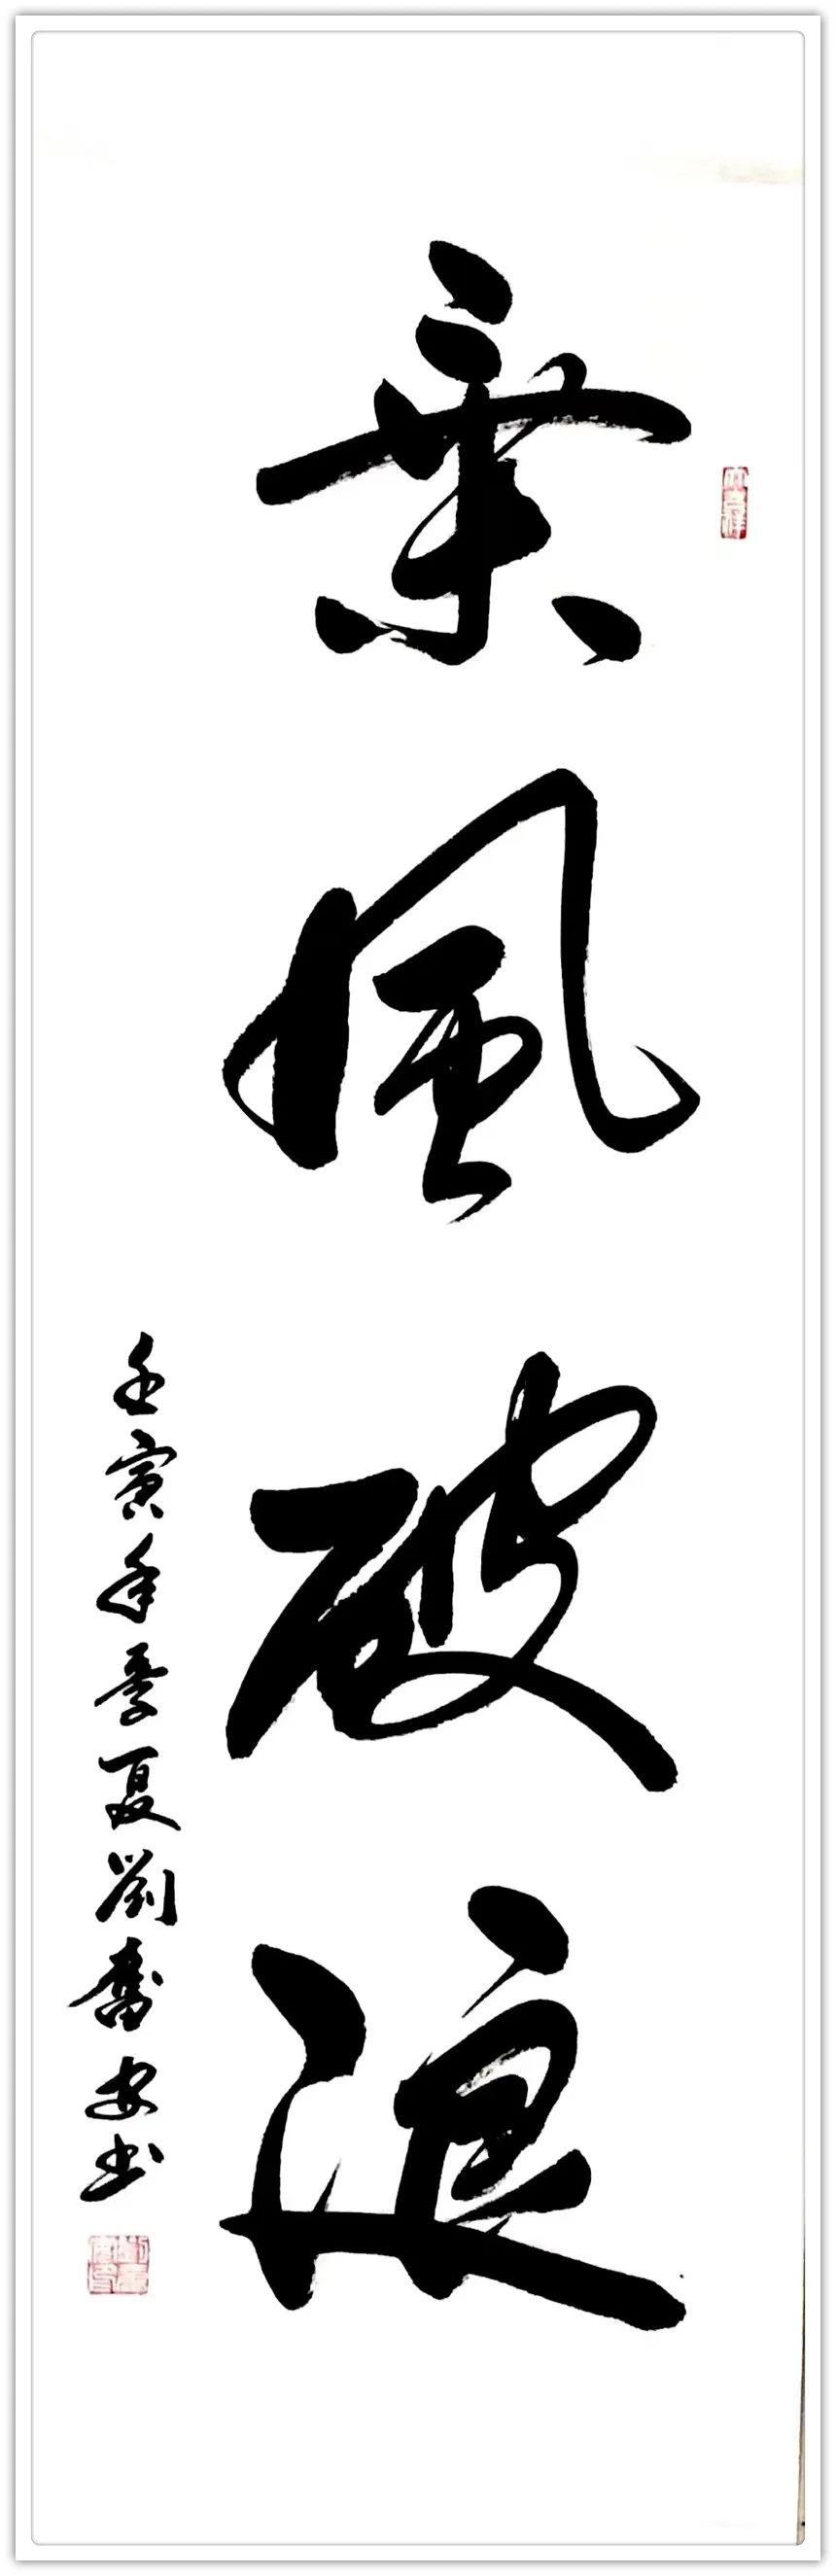 乘風破浪
壬寅年季夏劉奮安書